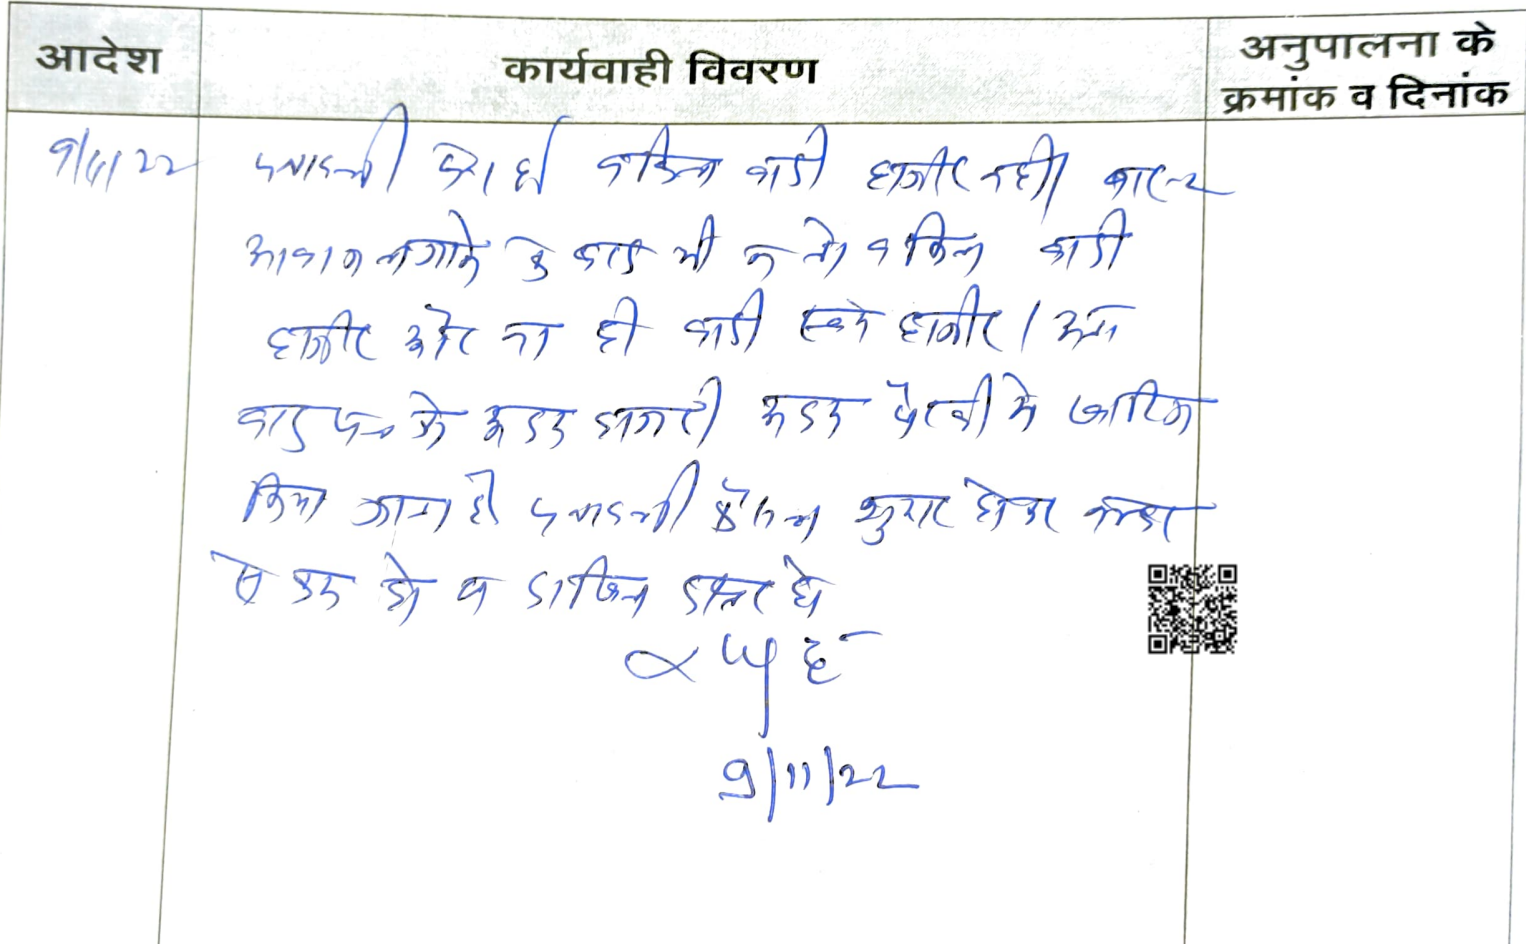 आदेश कार्यवाही विवरण अनुपालना के क्रमांक व दिनांक
9/11/22 पत्रावली पेश हुई वकील वादी हाजीर नही। बार-2
आवाज लगाने के बाद भी न तो वकिल वादी
हाजीर और ना ही वादी स्वयं हाजीर। अतः
वाद पत्र को अदम हाजरी अदम पैरवी मे खारिज
किया जाता है पत्रावली फैसल शुमार होकर नम्बर
से कम हो व दाखिल दफ्तर हो
9/11/22